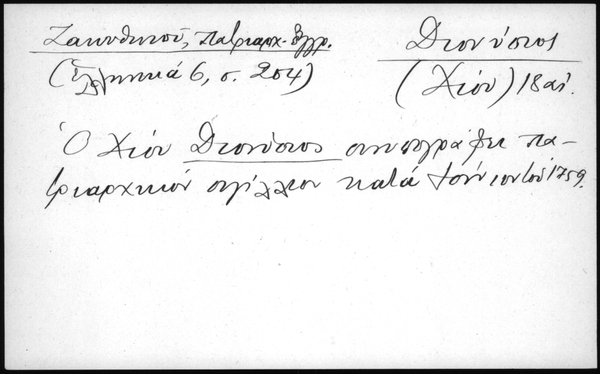 Ζακυθηνού, Πατριαρχ. έγγρ.
(Ἑλληνικά 6, σ. 204)
Διονύσιος
(Χίου) 18 αἰ.
Ὁ Χίου Διονύσιος συνυπογράφει πα-
τριαρχικόν σιγίλλιον κατά Ἰούνιον τοῦ 1759.